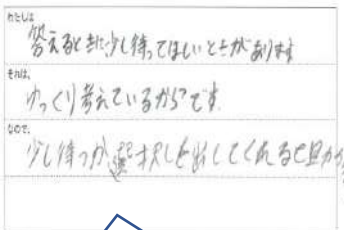 わたしは
答えるときに少し待ってほしいときがあります
それは、
ゆっくり考えているからです。
なので、
少し待つか選択しを出してくれると助か